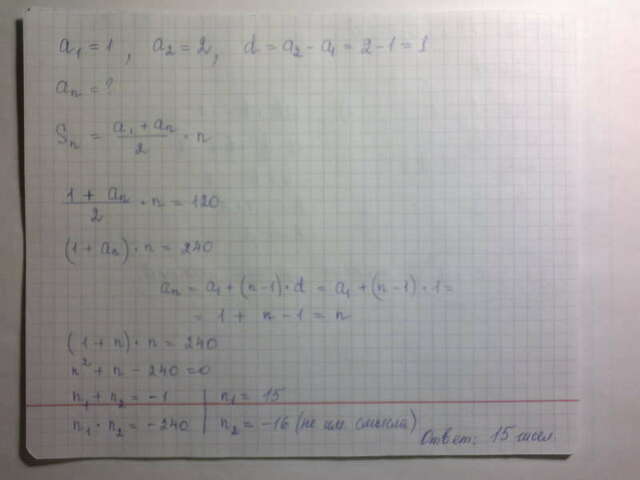 a₁ = 1, a₂ = 2, d = a₂ - a₁ = 2 - 1 = 1
aₙ = ?
Sₙ = (a₁ + aₙ)/2 · n
(1 + aₙ)/2 · n = 120
(1 + aₙ) · n = 240
aₙ = a₁ + (n-1) · d = a₁ + (n-1) · 1 =
= 1 + n - 1 = n
(1 + n) · n = 240
n² + n - 240 = 0
n₁ + n₂ = -1 | n₁ = 15
n₁ · n₂ = -240 | n₂ = -16 (не им. смысла)
Ответ: 15 чисел.